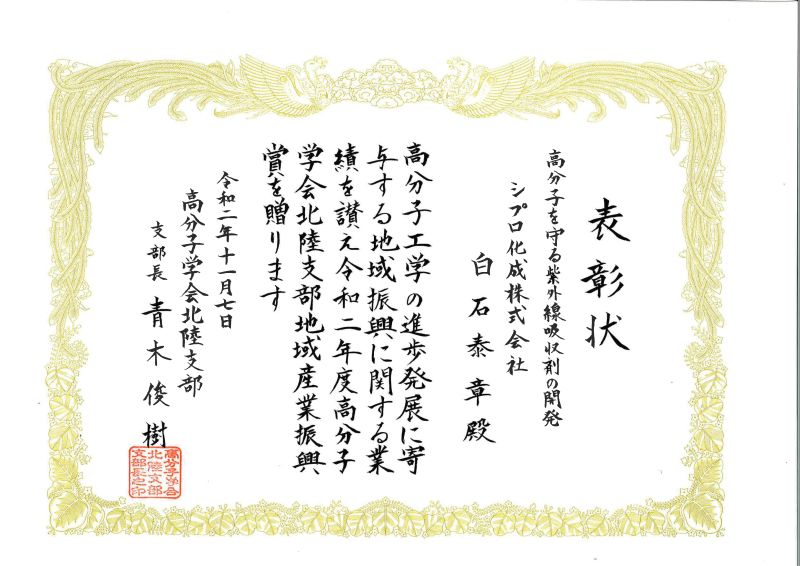 表彰状
高分子を守る紫外線吸収剤の開発
シプロ化成株式会社
白石泰章殿
高分子工学の進歩発展に寄
与する地域振興に関する業
績を讃え令和二年度高分子
学会北陸支部地域産業振興
賞を贈ります
令和二年十一月七日
高分子学会北陸支部
支部長 青木俊樹
高分子学会
北陸支部
支部長之印